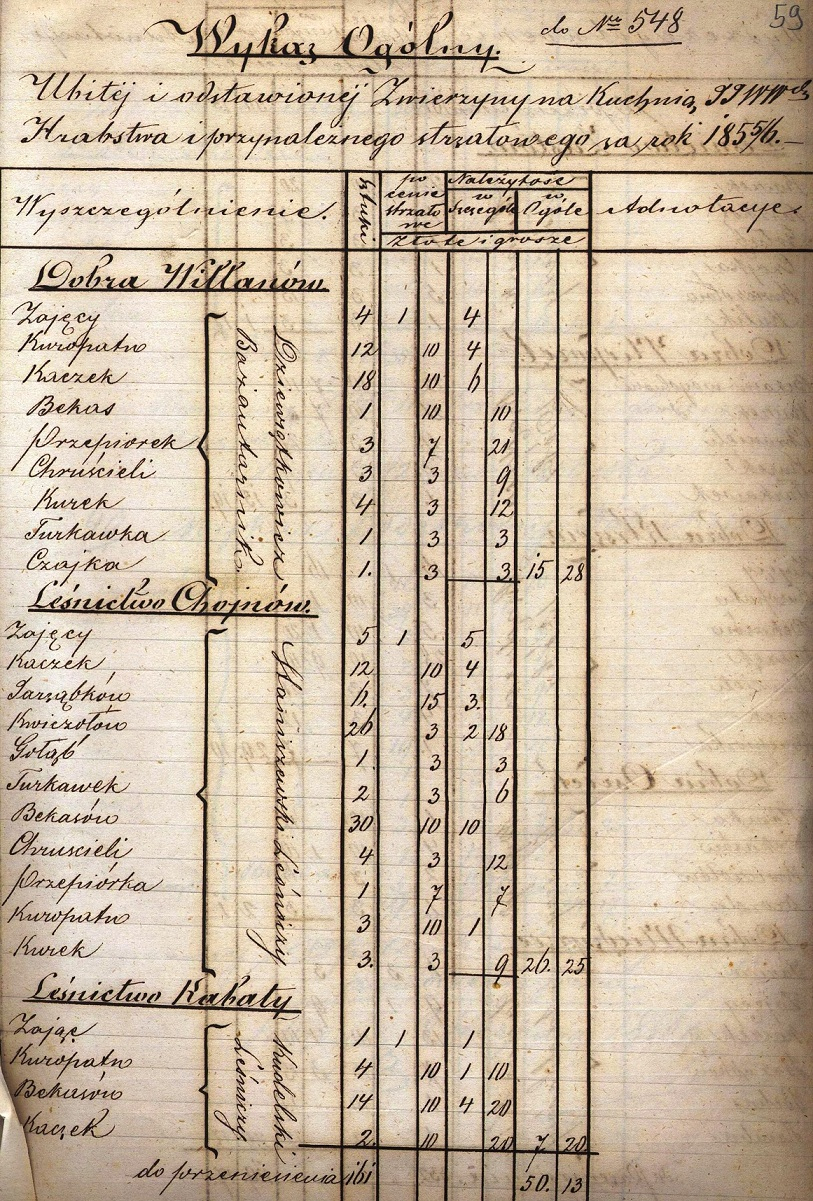 59
Wykaz Ogólny. do № 548
Ubitéj i odstawionéj Zwierzyny na Kuchnią JJWW
Hrabstwa i przynależnego strzałowego za rok 1855/6.—
Wyszczególnienie. Sztuki po cenie strzałowe Należytość w szczególe w Ogóle Adnotacye.
Złote i grosze
Dobra Willanów.
Zajęcy 4 1 4
Kuropatw 12 10 4
Kaczek 18 10 6
Bekas 1 10 10
Przepiorek 3 7 21
Chruścieli 3 3 9
Kurek 4 3 12
Turkawka 1 3 3
Czajka 1. 3 3 15 28
Dziewiątkowicz
Bażantarnik
Leśnictwo Chojnów.
Zajęcy 5 1 5
Kaczek 12 10 4
Jarząbków 6. 15 3.
Kwiczołów 26 3 2 18
Gołąb 1. 3 3
Turkawek 2 3 6
Bekasów 30 10 10
Chruscieli 4 3 12
Przepiórka 1 7 7
Kuropatw 3 10 1
Kurek 3. 3 9 26. 25
Staniszewski Leśniczy
Leśnictwo Kabaty
Zając 1 1 1
Kuropatw 4 10 1 10
Bekasów 14 10 4 20
Kaczek 2. 10 20 7. 20
Kudelski
Leśniczy
do przeniesienia 161 50. 13